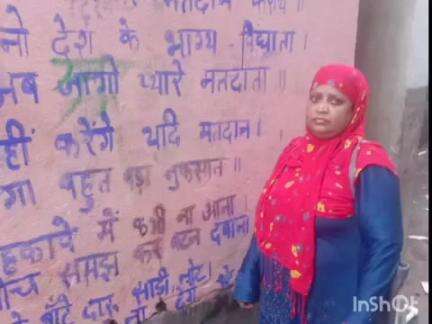 मतदान कराये ॥
नो देश के भाग्य विघाता ।
अब जागो प्यारे मतदाता ॥
हीं करेंगे यदि मतदान ।
गा बहुत बड़ा नुकसान ॥
हकावे में कभी ना आना ।
सोच समझ कर बटन दबाना
बाँटे दारू साड़ी नोट ।
InShOt